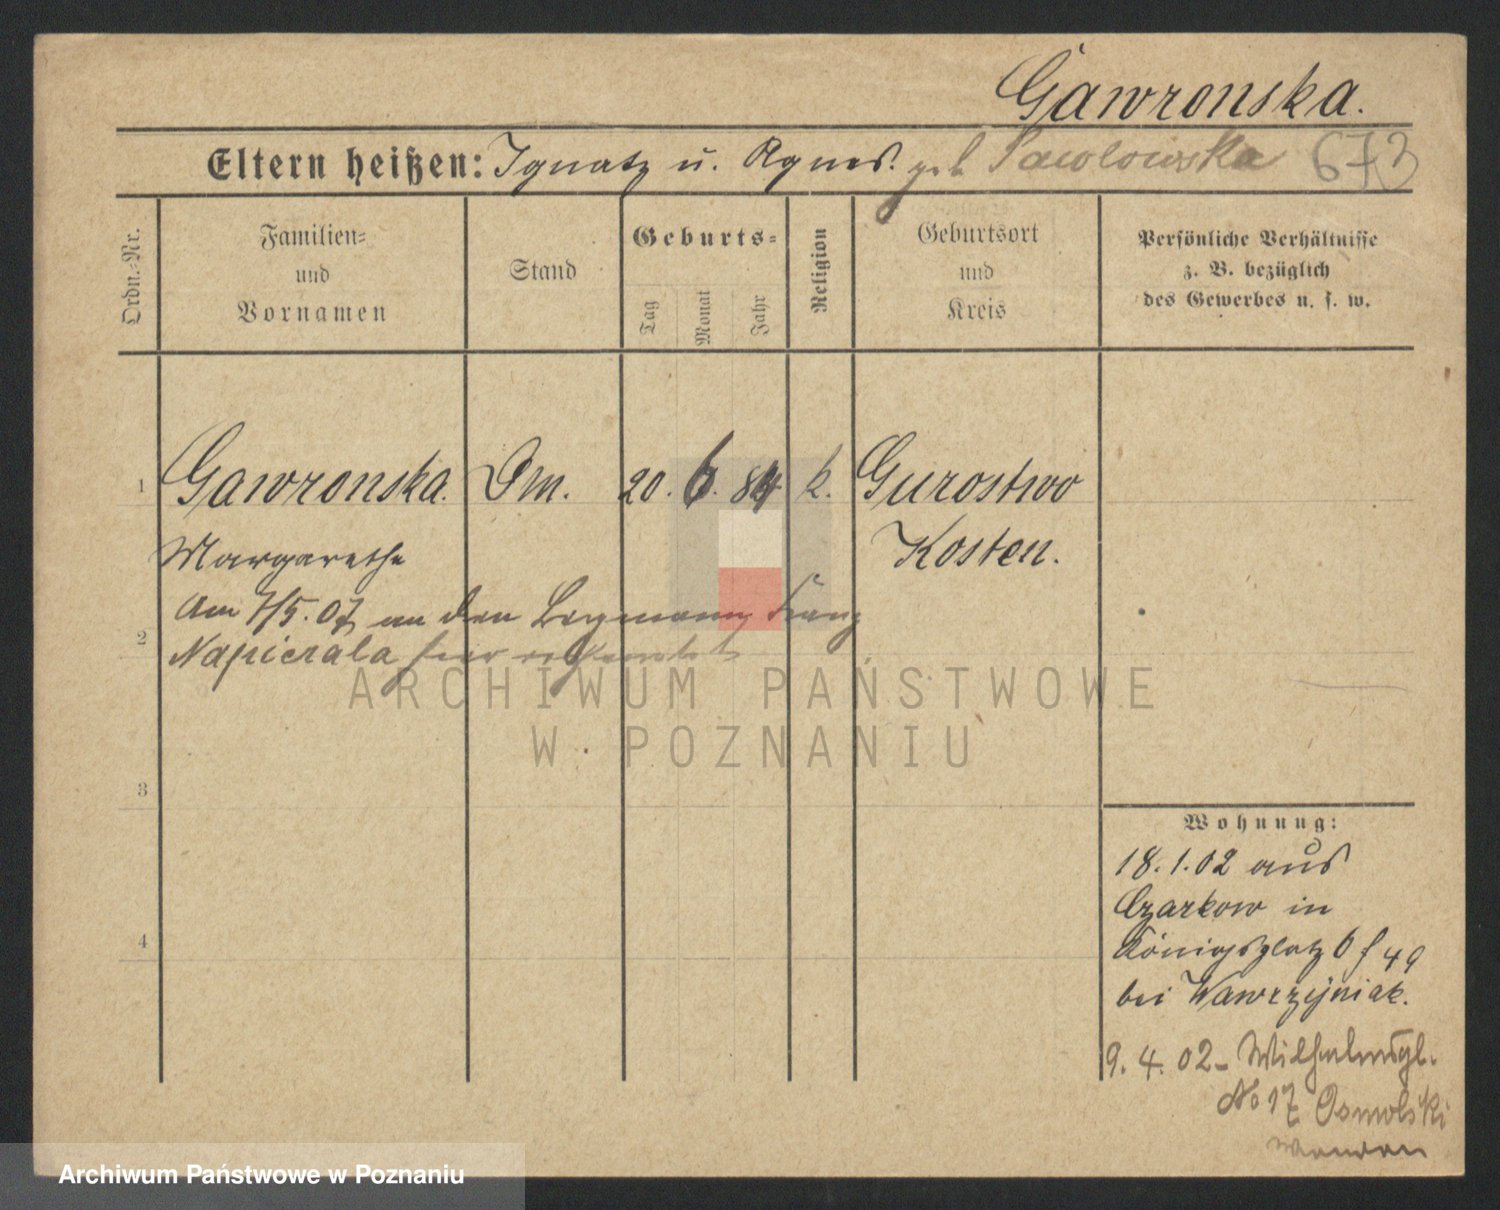 Gawronska.
Eltern heißen: Ignatz u. Agnes. geb Pawlowska 673
Ordn.-Nr.
Familien-
und
Vornamen
Stand
Geburts-
Tag
Monat
Jahr
Religion
Geburtsort
und
Kreis
Persönliche Verhältnisse
z. B. bezüglich
des Gewerbes u. s. w.
1 Gawronska. Dm. 20. 6. 84 k. Gurostwo
Margarethe Kosten.
Am 7/5.07 an den Bergmann Franz
2 Napierala hier verheiratet
ARCHIWUM PAŃSTWOWE
W POZNANIU
3
4
Wohnung:
18.1.02 aus
Czarkow in
Königsplatz 6 f 49
bei Wawrzyniak.
9. 4. 02- Wilhelmspl.
No 17 Osmolski
Archiwum Państwowe w Poznaniu